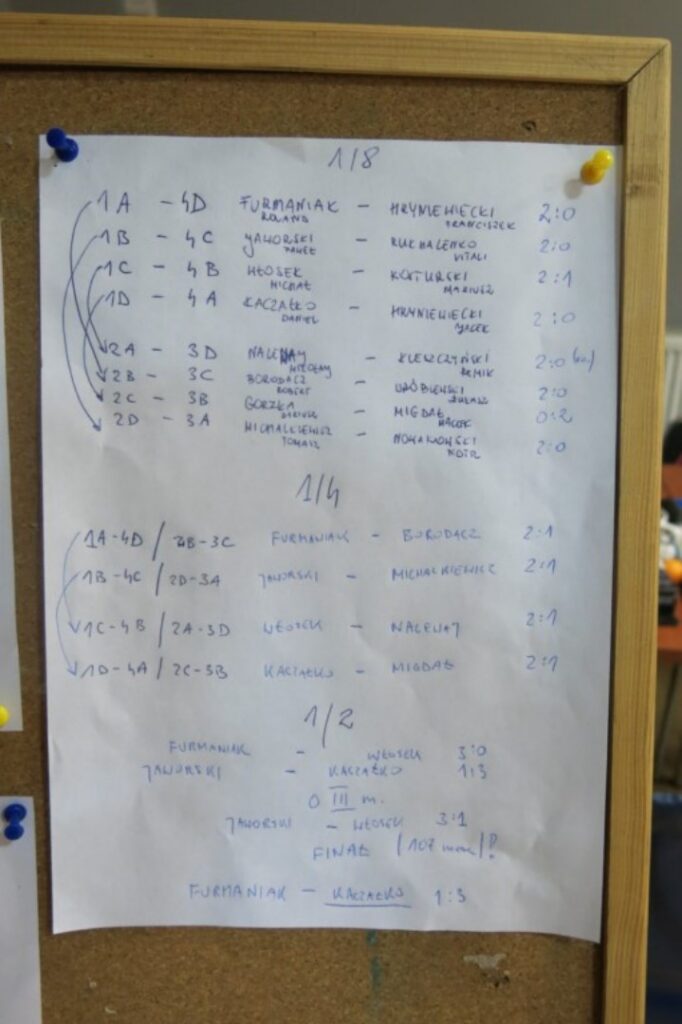 1/8
1A - 4D FURMANIAK ROLAND - HRYNIEWIECKI FRANCISZEK 2:0
1B - 4C JAWORSKI PAWEŁ - RUKHALENKO VITALI 2:0
1C - 4B WŁOSEK MICHAŁ - KOTURSKI MARIUSZ 2:1
1D - 4A KACZAŁKO DANIEL - HRYNIEWIECKI JACEK 2:0
2A - 3D NALEWAY - KLESZCZYŃSKI 2:0
2B - 3C BORODACZ ROBERT - WRÓBLEWSKI ŁUKASZ 2:0
2C - 3B GORZKA - MIGDAŁ MACIEK 0:2
2D - 3A MICHALKIEWICZ TOMASZ - NOWAKOWSKI PIOTR 2:0
1/4
1A-4D / 2B-3C FURMANIAK - BORODACZ 2:1
1B-4C / 2D-3A JAWORSKI - MICHALKIEWICZ 2:1
1C-4B / 2A-3D WŁOSEK - NALEWAJ 2:1
1D-4A / 2C-3B KACZAŁKO - MIGDAŁ 2:1
1/2
FURMANIAK - WŁOSEK 3:0
JAWORSKI - KACZAŁKO 1:3
O III m.
JAWORSKI - WŁOSEK 3:1
FINAŁ (107 min)!
FURMANIAK - KACZAŁKO 1:3